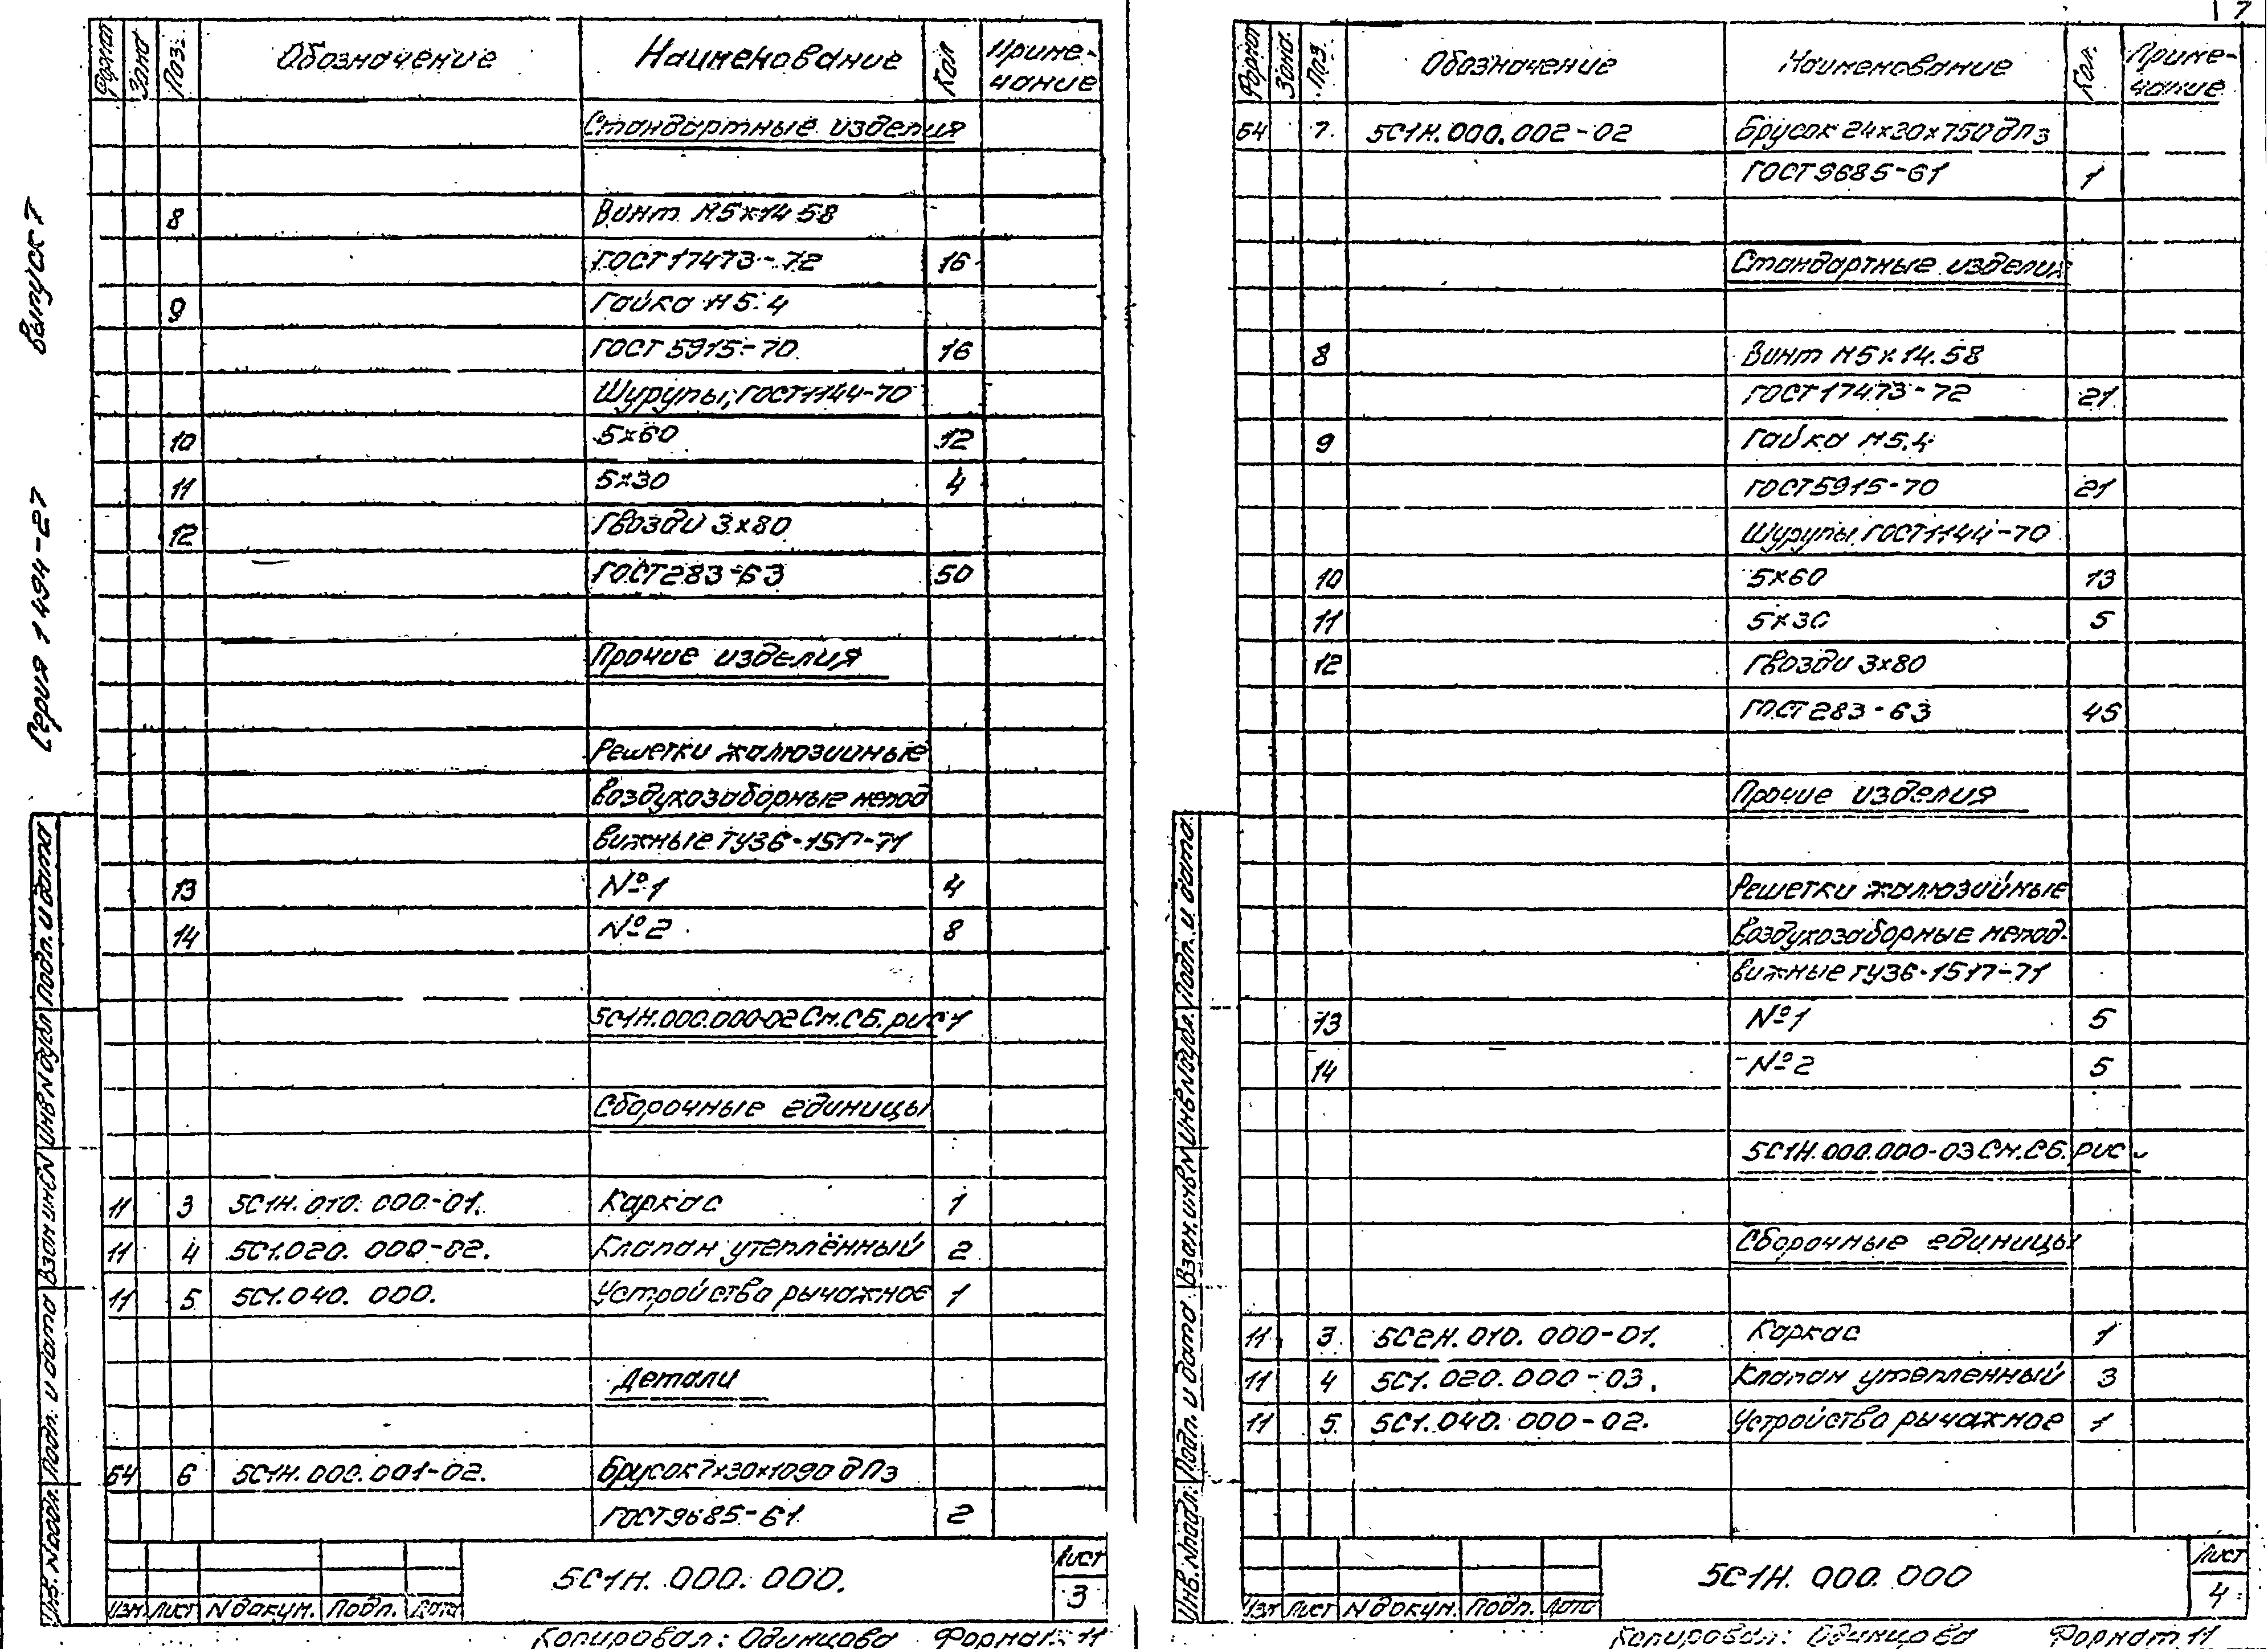 7
Выпуск 7
Серия 1 494-27
Формат Зона Поз. Обозначение Наименование Кол Приме-
чание
Стандартные изделия
8 Винт М5х14 58
ГОСТ 17473-72 16
9 Гайка М5.4
ГОСТ 5915-70 16
Шурупы, ГОСТ 1144-70
10 5х60 12
11 5х30 4
12 Гвозди 3х80
ГОСТ 283-63 50
Прочие изделия
Решетки жалюзийные
воздухозаборные непод
вижные ТУ36-1517-71
13 №1 4
14 №2 8
5С1Н.000.000-02 См.СБ.рис 1
Сборочные единицы
11 3 5С1Н.010.000-01. Каркас 1
11 4 5С1.020.000-02. Клапан утеплённый 2
11 5 5С1.040.000. Устройство рычажное 1
Детали
БЧ 6 5С1Н.000.001-02. Брусок 7х30х1090 дПз
ГОСТ 9685-61 2
5С1Н.000.000.
Лист
3
Изм. Лист N докум. Подп. Дата
Копировал: Одинцова Формат 11
Инв. N подл. Подп. и дата Взам инв N Инв N дубл Подп. и дата
Формат Зона. Поз. Обозначение Наименование Кол. Приме-
чание
БЧ 7 5С1Н.000.002-02 Брусок 24х30х750 дПз
ГОСТ 9685-61 1
Стандартные изделия
8 Винт М5х14.58
ГОСТ 17473-72 21
9 Гайка М5.4
ГОСТ 5915-70 21
Шурупы ГОСТ 1144-70
10 5х60 13
11 5х30 5
12 Гвозди 3х80
ГОСТ 283-63 45
Прочие изделия
Решетки жалюзийные
воздухозаборные непод-
вижные ТУ36-1517-71
13 №1 5
14 №2 5
5С1Н.000.000-03 См.СБ.рис
Сборочные единицы
11 3 5С2Н.010.000-01. Каркас 1
11 4 5С1.020.000-03. Клапан утепленный 3
11 5 5С1.040.000-02. Устройство рычажное 1
5С1Н.000.000
Лист
4
Изм Лист N докум. Подп. Дата
Копировал: Одинцова Формат 11
Инв. N подл. Подп. и дата Взам. инв N Инв N дубл. Подп. и дата.